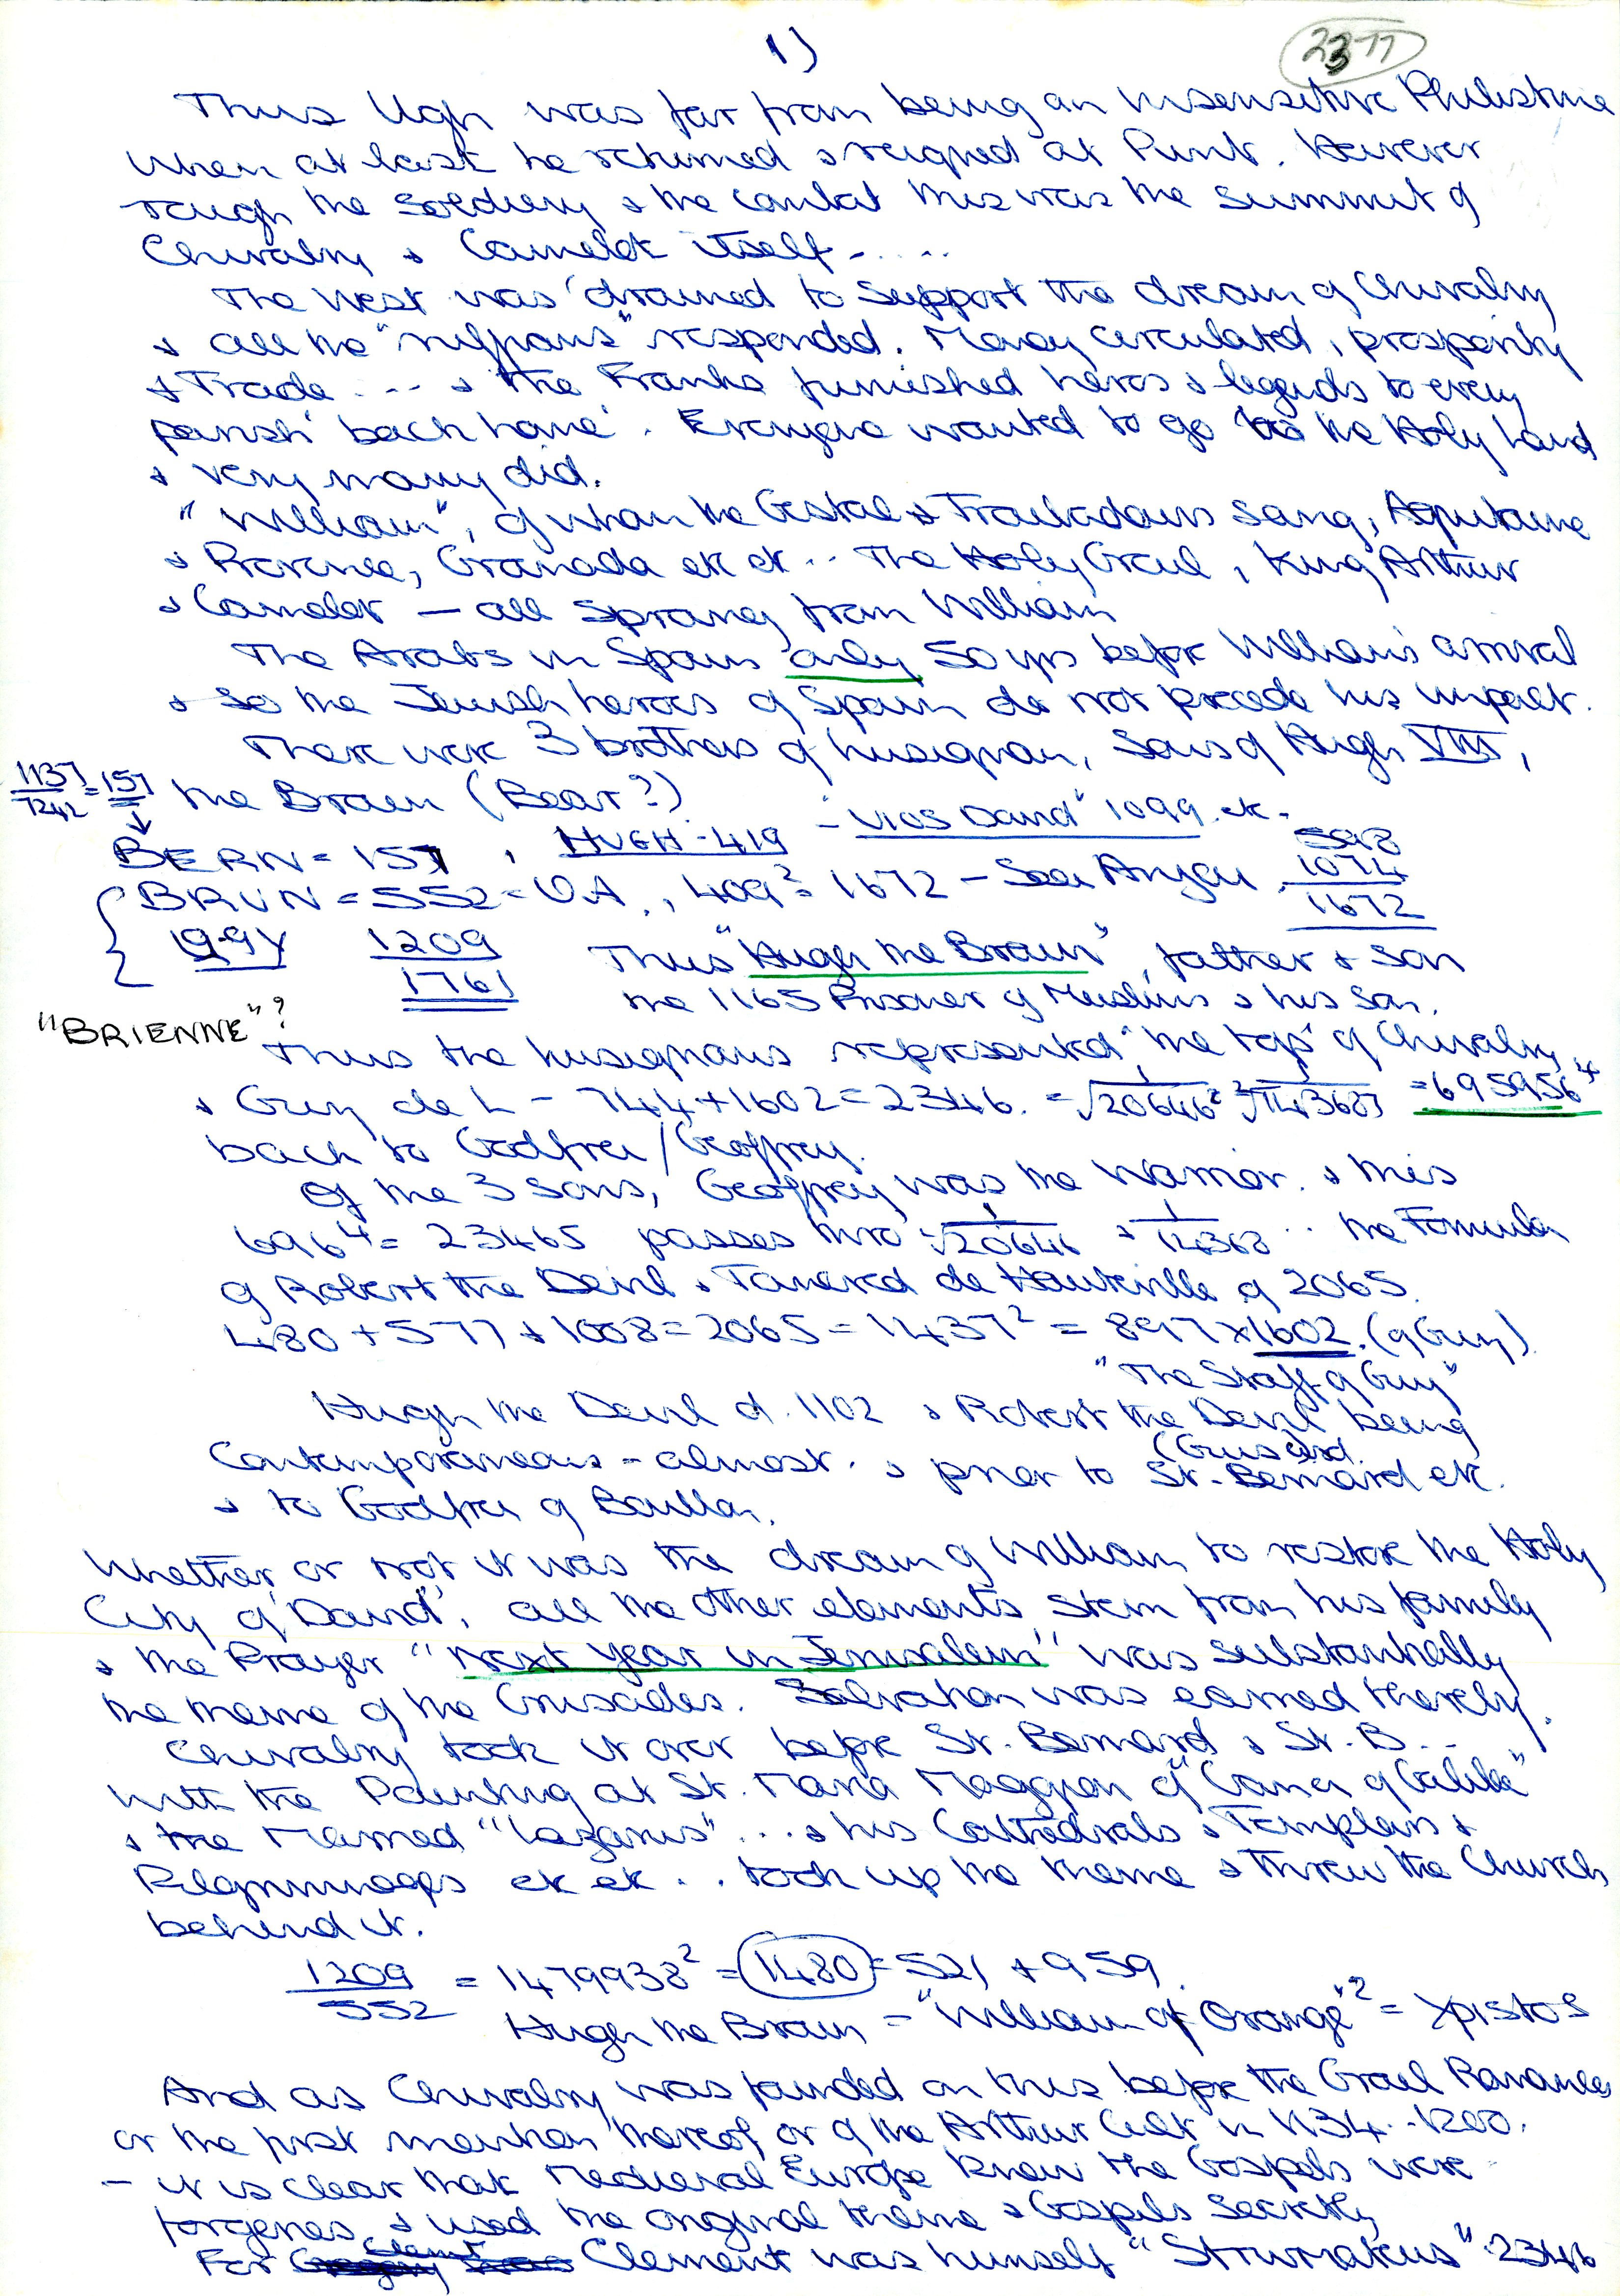 1)
2377
Thus Ugh was far from being an insensitive Philistine
when at last he returned & reigned at Punt. However
rough the soldiery & the combat this was the summit of
Chivalry & Camelot itself.....
The West was drained to support the dream of Chivalry
& all the "ruffians" responded. Money circulated, prosperity
& Trade ... & the Franks furnished heros & legends to every
parish 'back home'. Everyone wanted to go to the Holy Land
& very many did.
"William", of whom the & Troubadours sang, Aquitaine
& Provence, Granada etc etc .. The Holy Grail, King Arthur
& Camelot — all sprang from William
The Arabs in Spain only 50 yrs before William's arrival
& so the Jewish heroes of Spain do not precede his impact.
There were 3 brothers of Lusignan, Sons of Hugh VIII,
1137/7242 = 157 the Brown (Bear?)
- "UIOS David" 1099 etc -
BERN = 157, HUGH - 419
598
BRUN = 552 = O.A., 409² = 1672 - See Anjou 1074
1672
19.94 1209 Thus "Hugh the Brown", father & son
1761 the 1165 Prisoner of Muslims & his son.
"BRIENNE"?
Thus the Lusignans represented "the top" of Chivalry
& Guy de L - 744 + 1602 = 2346. = 1/√20646² 1/143683 = 695956⁴
back to Godfrei / Geoffrey.
Of the 3 sons, Geoffrey was the warrior. & this
696⁴ = 23465 passes thro 1/√20646 & 1/14368 .. the Formula
of Robert the Devil & Tancred de Hauteville of 2065.
480 + 577 + 1008 = 2065 = 1437² = 8977 x 1602. (of Guy)
"The Staff of Guy"
Hugh the Devil d. 1102 & Robert the Devil being
(Guiscard)
Contemporaneous - almost. & prior to St. Bernard etc.
& to Godfrei of Bouillon.
Whether or not it was the dream of William to restore the Holy
City of "David", all the other elements stem from his family
& the Prayer "Next Year in Jerusalem" was substantially
the theme of the Crusades. Salvation was earned thereby.
Chivalry took it over before St. Bernard & St. B...
with the Painting at St. Maria Maggiore of "Cana of Galilee"
& the Married "Lazarus" ... & his Cathedrals & Templars &
Pilgrimmages etc etc .. took up the theme & threw the Church
behind it.
1209/552 = 1479938² = 1480 = 521 + 959.
Hugh the Brown = "William of Orange"² = Xpistos
And as Chivalry was founded on this before the Grail Romances
or the first mention thereof or of the Arthur Cult in 1134 - 1200.
- it is clear that Medieval Europe knew the Gospels were
forgeries & used the original theme & Gospels secretly
For Clement was himself "Stromateus" 2346